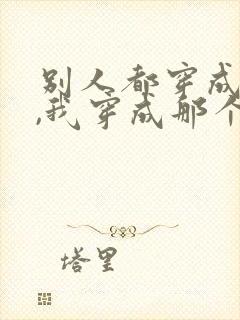 别人都穿成
,我穿成那个
塔里